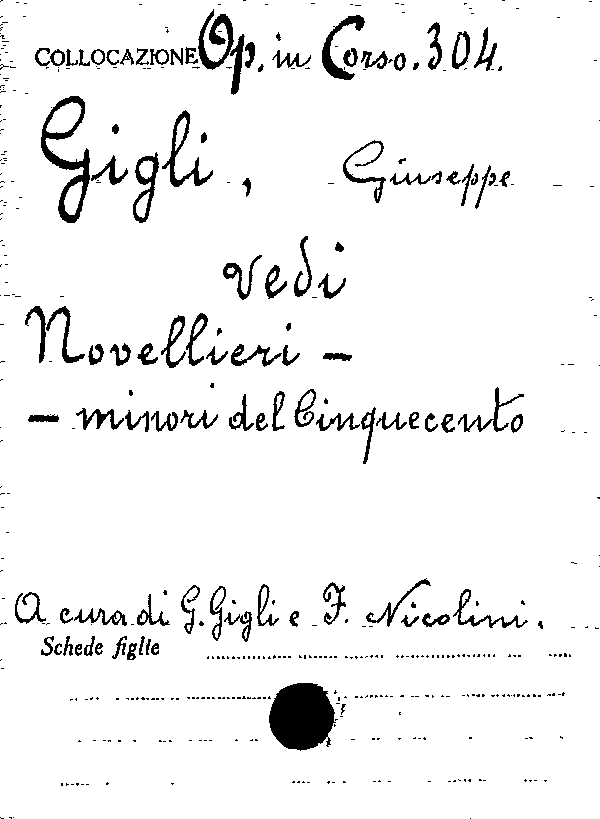 COLLOCAZIONE Op. in Corso. 304.
Gigli, Giuseppe
vedi
Novellieri -
- minori del Cinquecento
A cura di G. Gigli e F. Nicolini.
Schede figlie